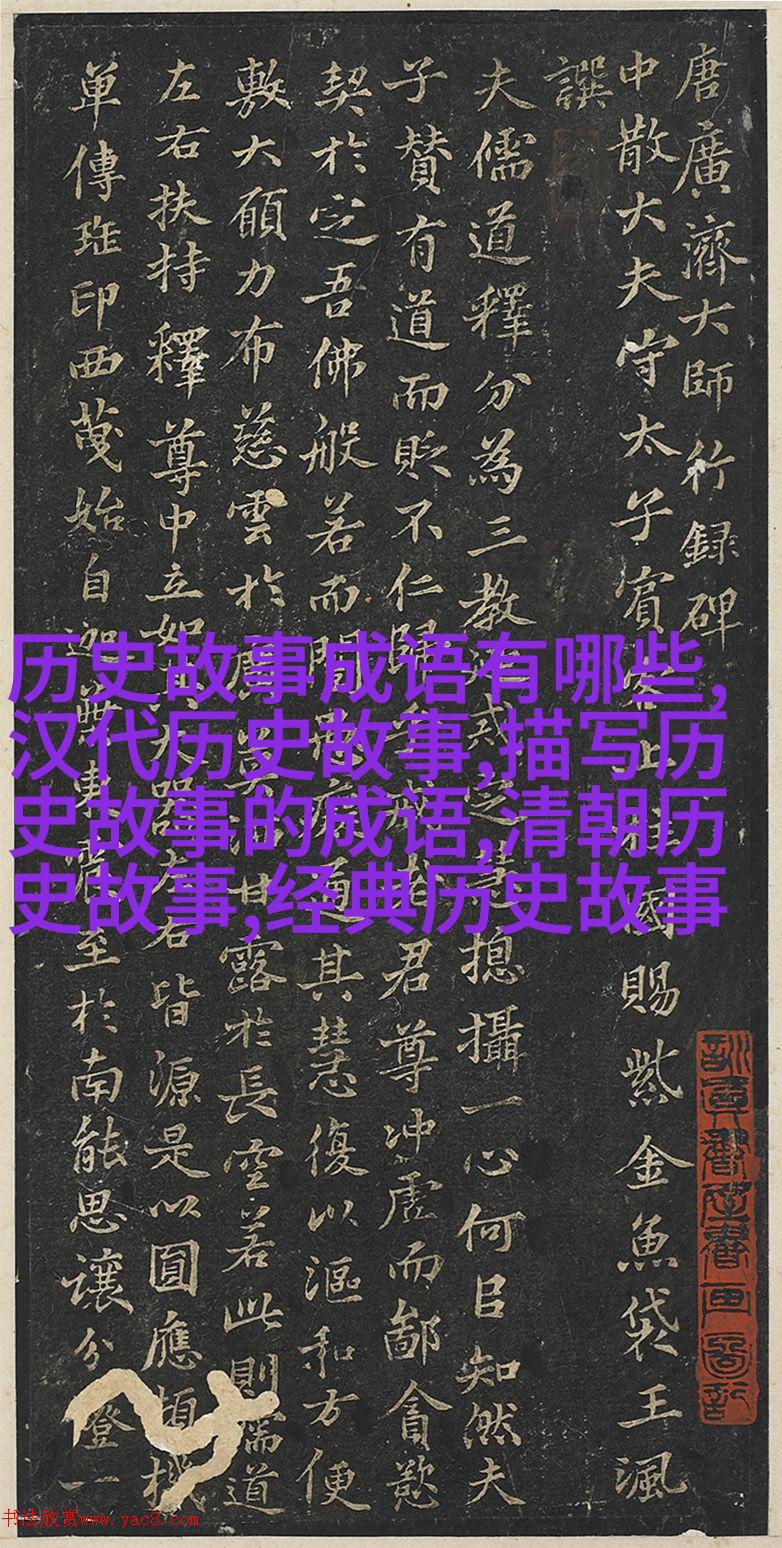 唐廣濟大師行録碑
中散大夫守太子賓客上柱國賜紫金魚袋王諷
譔
夫儒道釋分為三教
揔攝一心何㠯知然夫
子賛有道而貶不仁
君尊冲虛而鄙貪慾
契於空吾佛般若而
其慧復以漚和方便
敷大願力布慈雲於
甘露於長空若此則儒道
左右扶持釋尊中立如
皆源是以圓應頓機
單傳玨印西
始自迦
至於南能思讓分燈一
历史故事成语有哪些,
汉代历史故事,描写历
史故事的成语,清朝历
史故事,经典历史故事
书法欣赏www.yac8.com